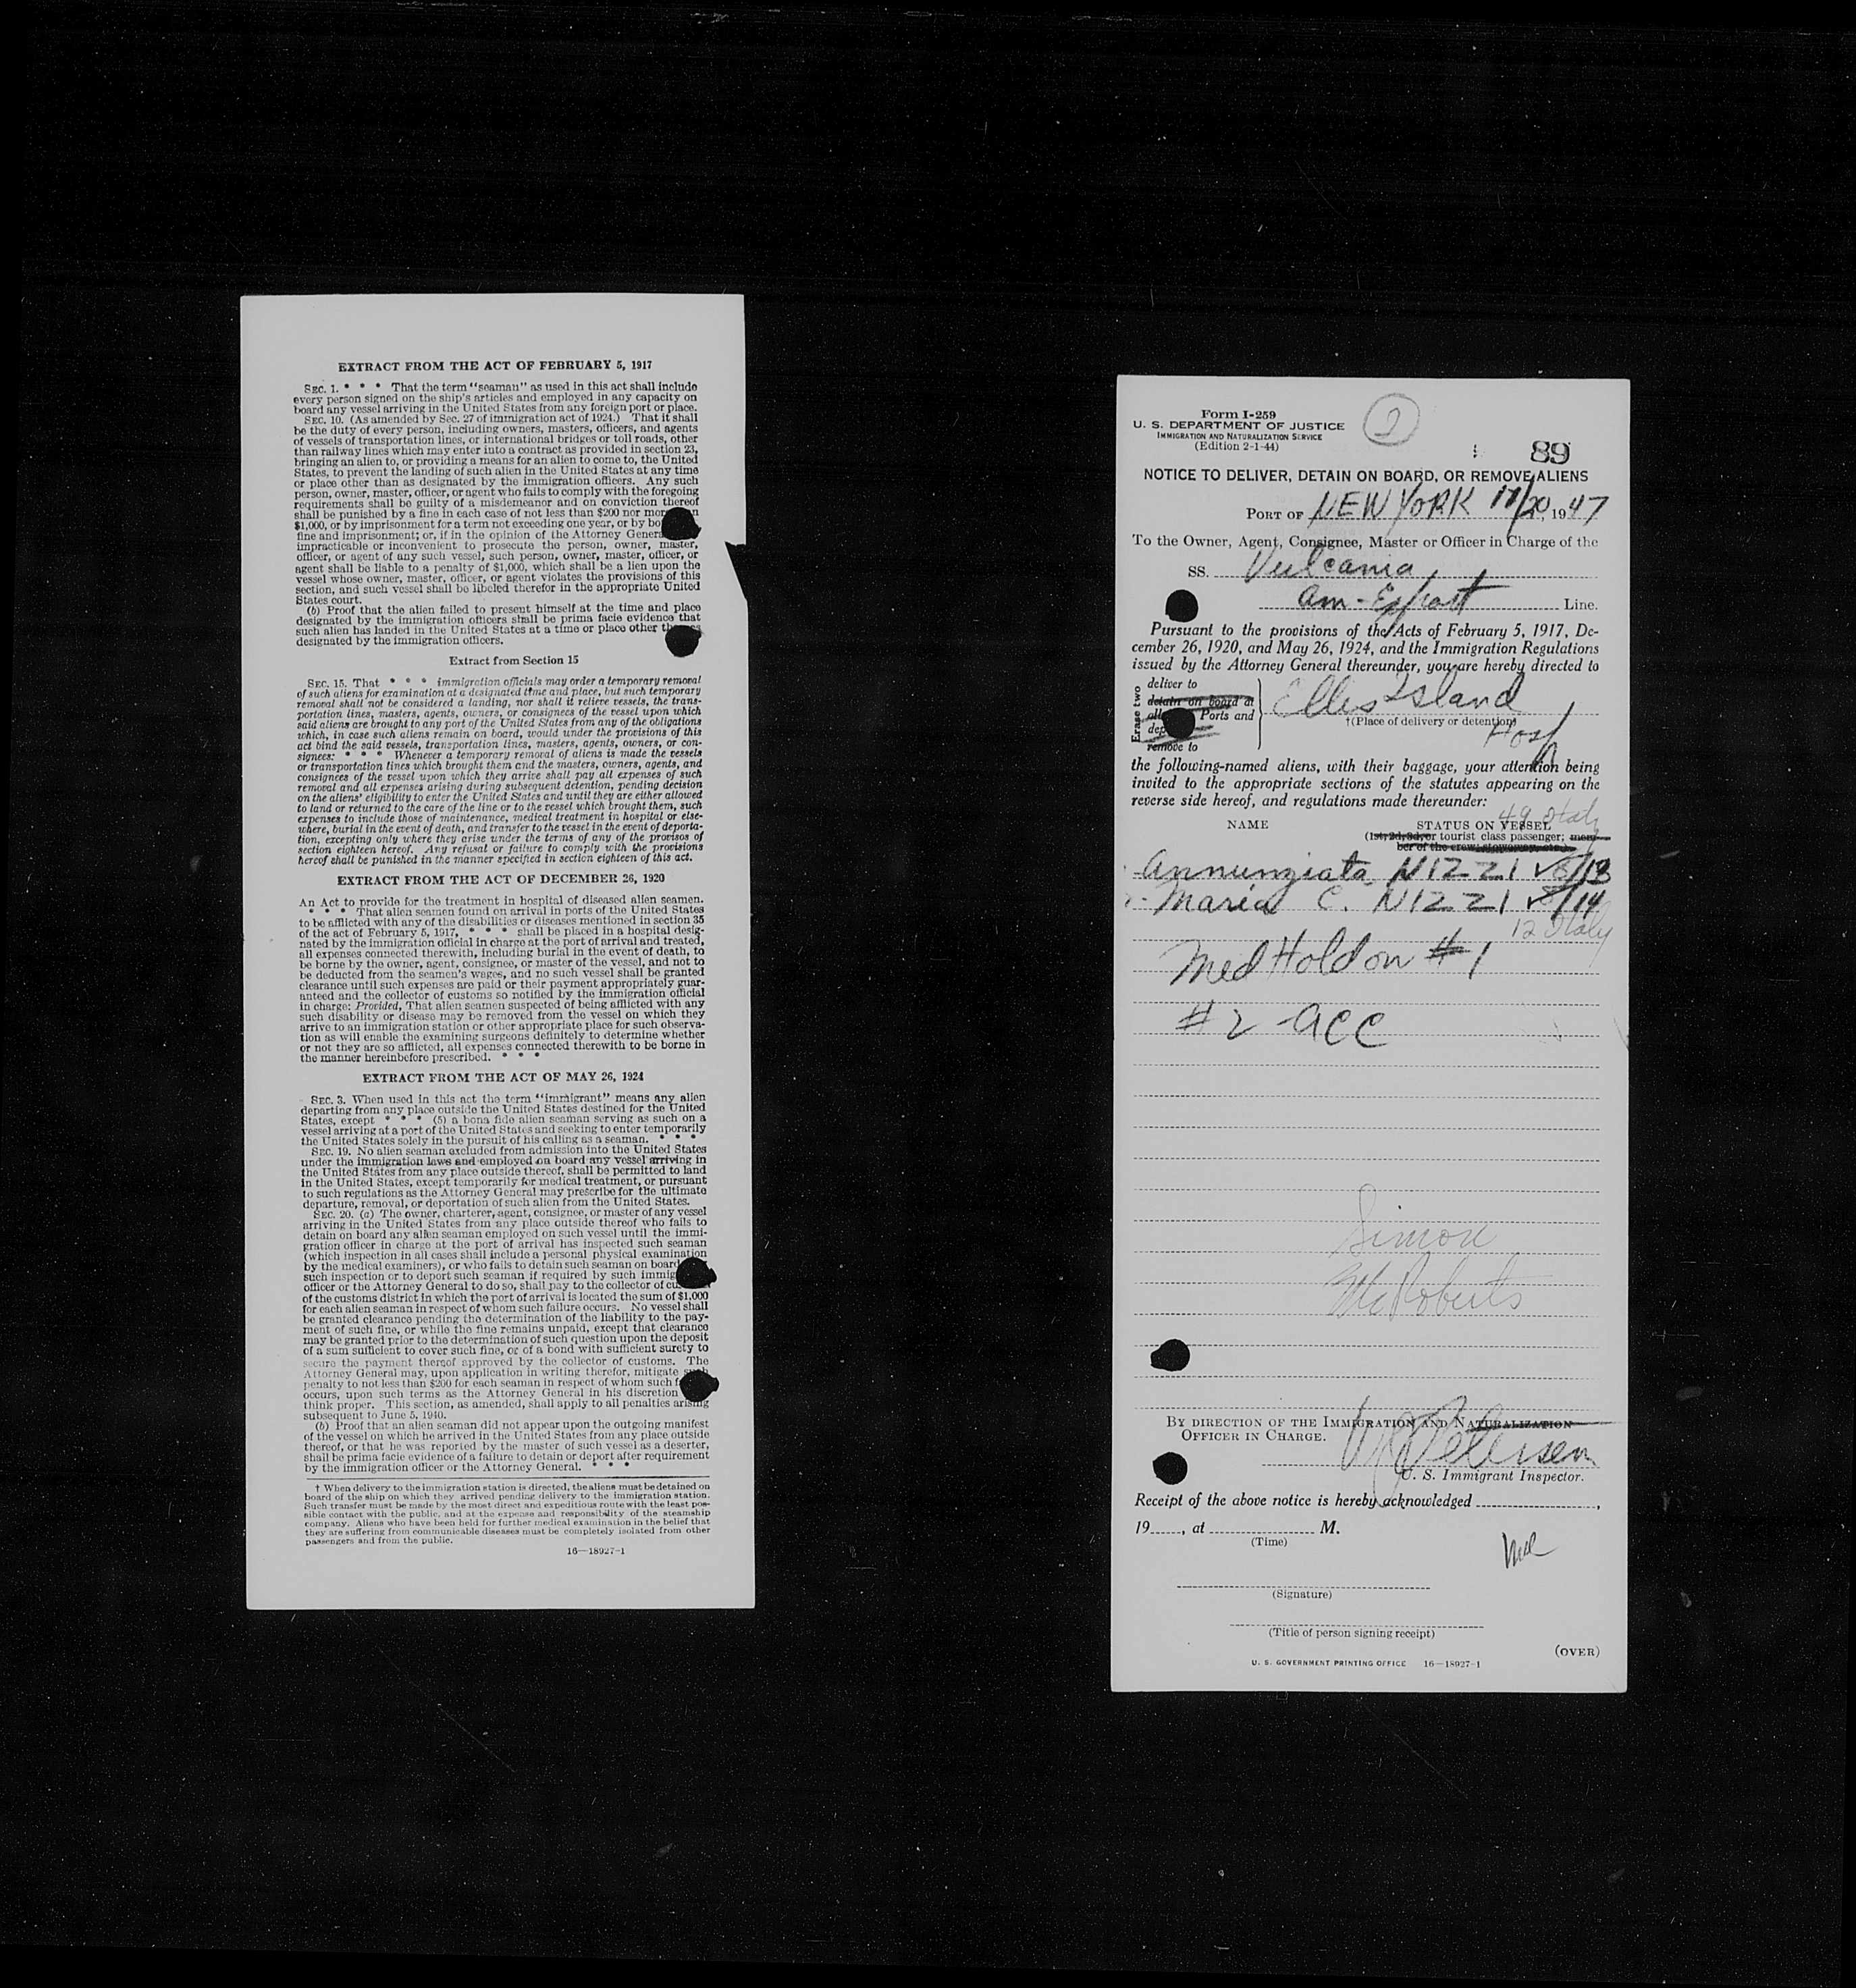 EXTRACT FROM THE ACT OF FEBRUARY 5, 1917
SEC. 1. * * * That the term "seaman" as used in this act shall include
every person signed on the ship's articles and employed in any capacity on
board any vessel arriving in the United States from any foreign port or place.
SEC. 10. (As amended by Sec. 27 of immigration act of 1924.) That it shall
be the duty of every person, including owners, masters, officers, and agents
of vessels of transportation lines, or international bridges or toll roads, other
than railway lines which may enter into a contract as provided in section 23,
bringing an alien to, or providing a means for an alien to come to, the United
States, to prevent the landing of such alien in the United States at any time
or place other than as designated by the immigration officers. Any such
person, owner, master, officer, or agent who fails to comply with the foregoing
requirements shall be guilty of a misdemeanor and on conviction thereof
shall be punished by a fine in each case of not less than $200 nor mor
$1,000, or by imprisonment for a term not exceeding one year, or by bo
fine and imprisonment; or, if in the opinion of the Attorney Gener
impracticable or inconvenient to prosecute the person, owner, master,
officer, or agent of any such vessel, such person, owner, master, officer, or
agent shall be liable to a penalty of $1,000, which shall be a lien upon the
vessel whose owner, master, officer, or agent violates the provisions of this
section, and such vessel shall be libeled therefor in the appropriate United
States court.
(b) Proof that the alien failed to present himself at the time and place
designated by the immigration officers shall be prima facie evidence that
such alien has landed in the United States at a time or place other
designated by the immigration officers.
Extract from Section 15
SEC. 15. That * * * immigration officials may order a temporary removal
of such aliens for examination at a designated time and place, but such temporary
removal shall not be considered a landing, nor shall it relieve vessels, the trans-
portation lines, masters, agents, owners, or consignees of the vessel upon which
said aliens are brought to any port of the United States from any of the obligations
which, in case such aliens remain on board, would under the provisions of this
act bind the said vessels, transportation lines, masters, agents, owners, or con-
signees: * * * Whenever a temporary removal of aliens is made the vessels
or transportation lines which brought them and the masters, owners, agents, and
consignees of the vessel upon which they arrive shall pay all expenses of such
removal and all expenses arising during subsequent detention, pending decision
on the aliens' eligibility to enter the United States and until they are either allowed
to land or returned to the care of the line or to the vessel which brought them, such
expenses to include those of maintenance, medical treatment in hospital or else-
where, burial in the event of death, and transfer to the vessel in the event of deporta-
tion, excepting only where they arise under the terms of any of the provisos of
section eighteen hereof. Any refusal or failure to comply with the provisions
hereof shall be punished in the manner specified in section eighteen of this act.
EXTRACT FROM THE ACT OF DECEMBER 26, 1920
An Act to provide for the treatment in hospital of diseased alien seamen.
* * * * That alien seamen found on arrival in ports of the United States
to be afflicted with any of the disabilities or diseases mentioned in section 35
of the act of February 5, 1917, * * * shall be placed in a hospital desig-
nated by the immigration official in charge at the port of arrival and treated,
all expenses connected therewith, including burial in the event of death, to
be borne by the owner, agent, consignee, or master of the vessel, and not to
be deducted from the seamen's wages, and no such vessel shall be granted
clearance until such expenses are paid or their payment appropriately guar-
anteed and the collector of customs so notified by the immigration official
in charge: Provided, That alien seamen suspected of being afflicted with any
such disability or disease may be removed from the vessel on which they
arrive to an immigration station or other appropriate place for such observa-
tion as will enable the examining surgeons definitely to determine whether
or not they are so afflicted, all expenses connected therewith to be borne in
the manner hereinbefore prescribed. * * *
EXTRACT FROM THE ACT OF MAY 26, 1924
SEC. 3. When used in this act the term "immigrant" means any alien
departing from any place outside the United States destined for the United
States, except * * * (5) a bona fide alien seaman serving as such on a
vessel arriving at a port of the United States and seeking to enter temporarily
the United States solely in the pursuit of his calling as a seaman. * * *
SEC. 19. No alien seaman excluded from admission into the United States
under the immigration laws and employed on board any vessel arriving in
the United States from any place outside thereof, shall be permitted to land
in the United States, except temporarily for medical treatment, or pursuant
to such regulations as the Attorney General may prescribe for the ultimate
departure, removal, or deportation of such alien from the United States.
SEC. 20. (a) The owner, charterer, agent, consignee, or master of any vessel
arriving in the United States from any place outside thereof who fails to
detain on board any alien seaman employed on such vessel until the immi-
gration officer in charge at the port of arrival has inspected such seaman
(which inspection in all cases shall include a personal physical examination
by the medical examiners), or who fails to detain such seaman on board
such inspection or to deport such seaman if required by such immig
officer or the Attorney General to do so, shall pay to the collector of cu
of the customs district in which the port of arrival is located the sum of $1,000
for each alien seaman in respect of whom such failure occurs. No vessel shall
be granted clearance pending the determination of the liability to the pay-
ment of such fine, or while the fine remains unpaid, except that clearance
may be granted prior to the determination of such question upon the deposit
of a sum sufficient to cover such fine, or of a bond with sufficient surety to
secure the payment thereof approved by the collector of customs. The
Attorney General may, upon application in writing therefor, mitigate such
penalty to not less than $200 for each seaman in respect of whom such f
occurs, upon such terms as the Attorney General in his discretion
think proper. This section, as amended, shall apply to all penalties arising
subsequent to June 5, 1940.
(b) Proof that an alien seaman did not appear upon the outgoing manifest
of the vessel on which he arrived in the United States from any place outside
thereof, or that he was reported by the master of such vessel as a deserter,
shall be prima facie evidence of a failure to detain or deport after requirement
by the immigration officer or the Attorney General. * * *
† When delivery to the immigration station is directed, the aliens must be detained on
board of the ship on which they arrived pending delivery to the immigration station.
Such transfer must be made by the most direct and expeditious route with the least pos-
sible contact with the public, and at the expense and responsibility of the steamship
company. Aliens who have been held for further medical examination in the belief that
they are suffering from communicable diseases must be completely isolated from other
passengers and from the public.
16—18927-1
Form I-259
U. S. DEPARTMENT OF JUSTICE
IMMIGRATION AND NATURALIZATION SERVICE
(Edition 2-1-44)
89
NOTICE TO DELIVER, DETAIN ON BOARD, OR REMOVE ALIENS
PORT OF NEW YORK 11/20, 1947
To the Owner, Agent, Consignee, Master or Officer in Charge of the
SS. Vulcania
Am-Export Line.
Pursuant to the provisions of the Acts of February 5, 1917, De-
cember 26, 1920, and May 26, 1924, and the Immigration Regulations
issued by the Attorney General thereunder, you are hereby directed to
Erase two
deliver to
detain on board at
Ports and
remove to
Ellis Island
†(Place of delivery or detention)
Hosp
the following-named aliens, with their baggage, your attention being
invited to the appropriate sections of the statutes appearing on the
reverse side hereof, and regulations made thereunder:
49 Italy
NAME STATUS ON VESSEL
(1st, 2d, 3d, or tourist class passenger; mem-
ber of the crew; stowaway, etc.)
Annunziata NIZZI ✓ 6/13
2. Maria C. NIZZI ✓ /14
12 Italy
Med Hold on #1
#2 - acc
Simon
McRoberts
BY DIRECTION OF THE IMMIGRATION AND NATURALIZATION
OFFICER IN CHARGE.
Petersen
U. S. Immigrant Inspector.
Receipt of the above notice is hereby acknowledged ,
19 , at M.
(Time)
(Signature)
(Title of person signing receipt)
(OVER)
U. S. GOVERNMENT PRINTING OFFICE 16—18927-1